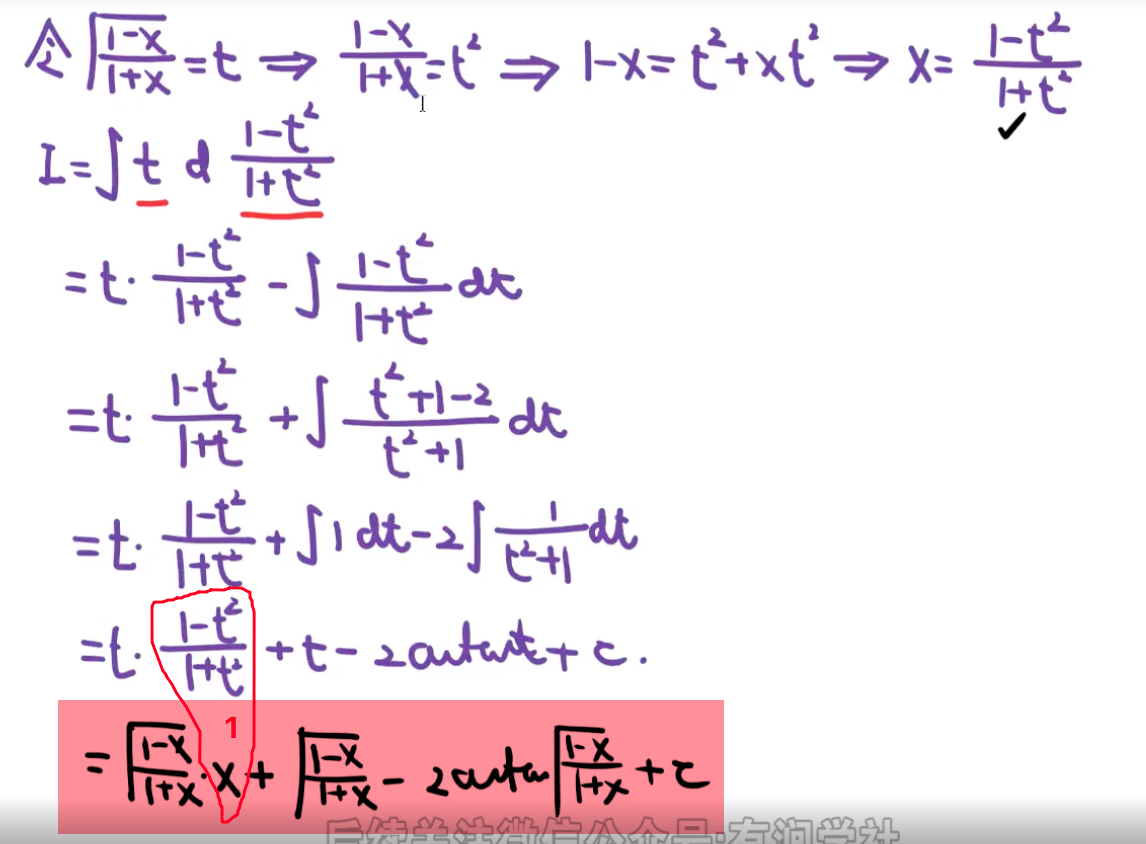 令 √((1-x)/(1+x)) = t ⇒ (1-x)/(1+x) = t² ⇒ 1-x = t²+xt² ⇒ x = (1-t²)/(1+t²) ✓
I = ∫ t d (1-t²)/(1+t²)
= t · (1-t²)/(1+t²) - ∫ (1-t²)/(1+t²) dt
= t · (1-t²)/(1+t²) + ∫ (t²+1-2)/(t²+1) dt
= t · (1-t²)/(1+t²) + ∫ 1 dt - 2 ∫ 1/(t²+1) dt
= t · (1-t²)/(1+t²) + t - 2 arctan t + c.
1
= √((1-x)/(1+x)) · x + √((1-x)/(1+x)) - 2 arctan √((1-x)/(1+x)) + c
后续关注微信公众号:有洵学社